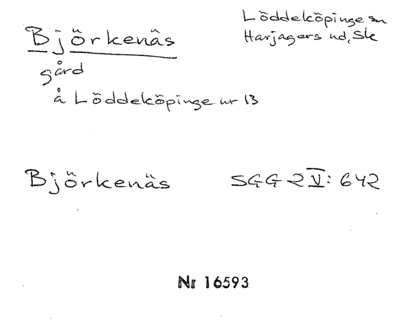 Björkenäs
Löddeköpinge sn
Harjagers hd, Sk
gård
å Löddeköpinge nr 13
Björkenäs SGG 2 V: 642
Nr 16593